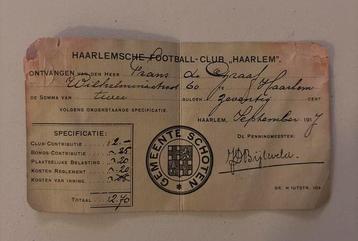 HAARLEMSCHE FOOTBALL-CLUB „HAARLEM".
ONTVANGEN VAN DEN HEER Frans de Graaf
Wilhelminastraat 60 Haarlem
DE SOMMA VAN twee GULDEN zeventig CENT
VOLGENS ONDERSTAANDE SPECIFICATIE.
HAARLEM, September 1917
SPECIFICATIE: DE PENNINGMEESTER,
CLUB-CONTRIBUTIE f 2.-
BONDS-CONTRIBUTIE „ 0.25
PLAATSELIJKE BELASTING „ 0.20
KOSTEN REGLEMENT „ 0.20
KOSTEN VAN INNING „ 0.05
TOTAAL f 2.70
GEMEENTE SCHOTEN